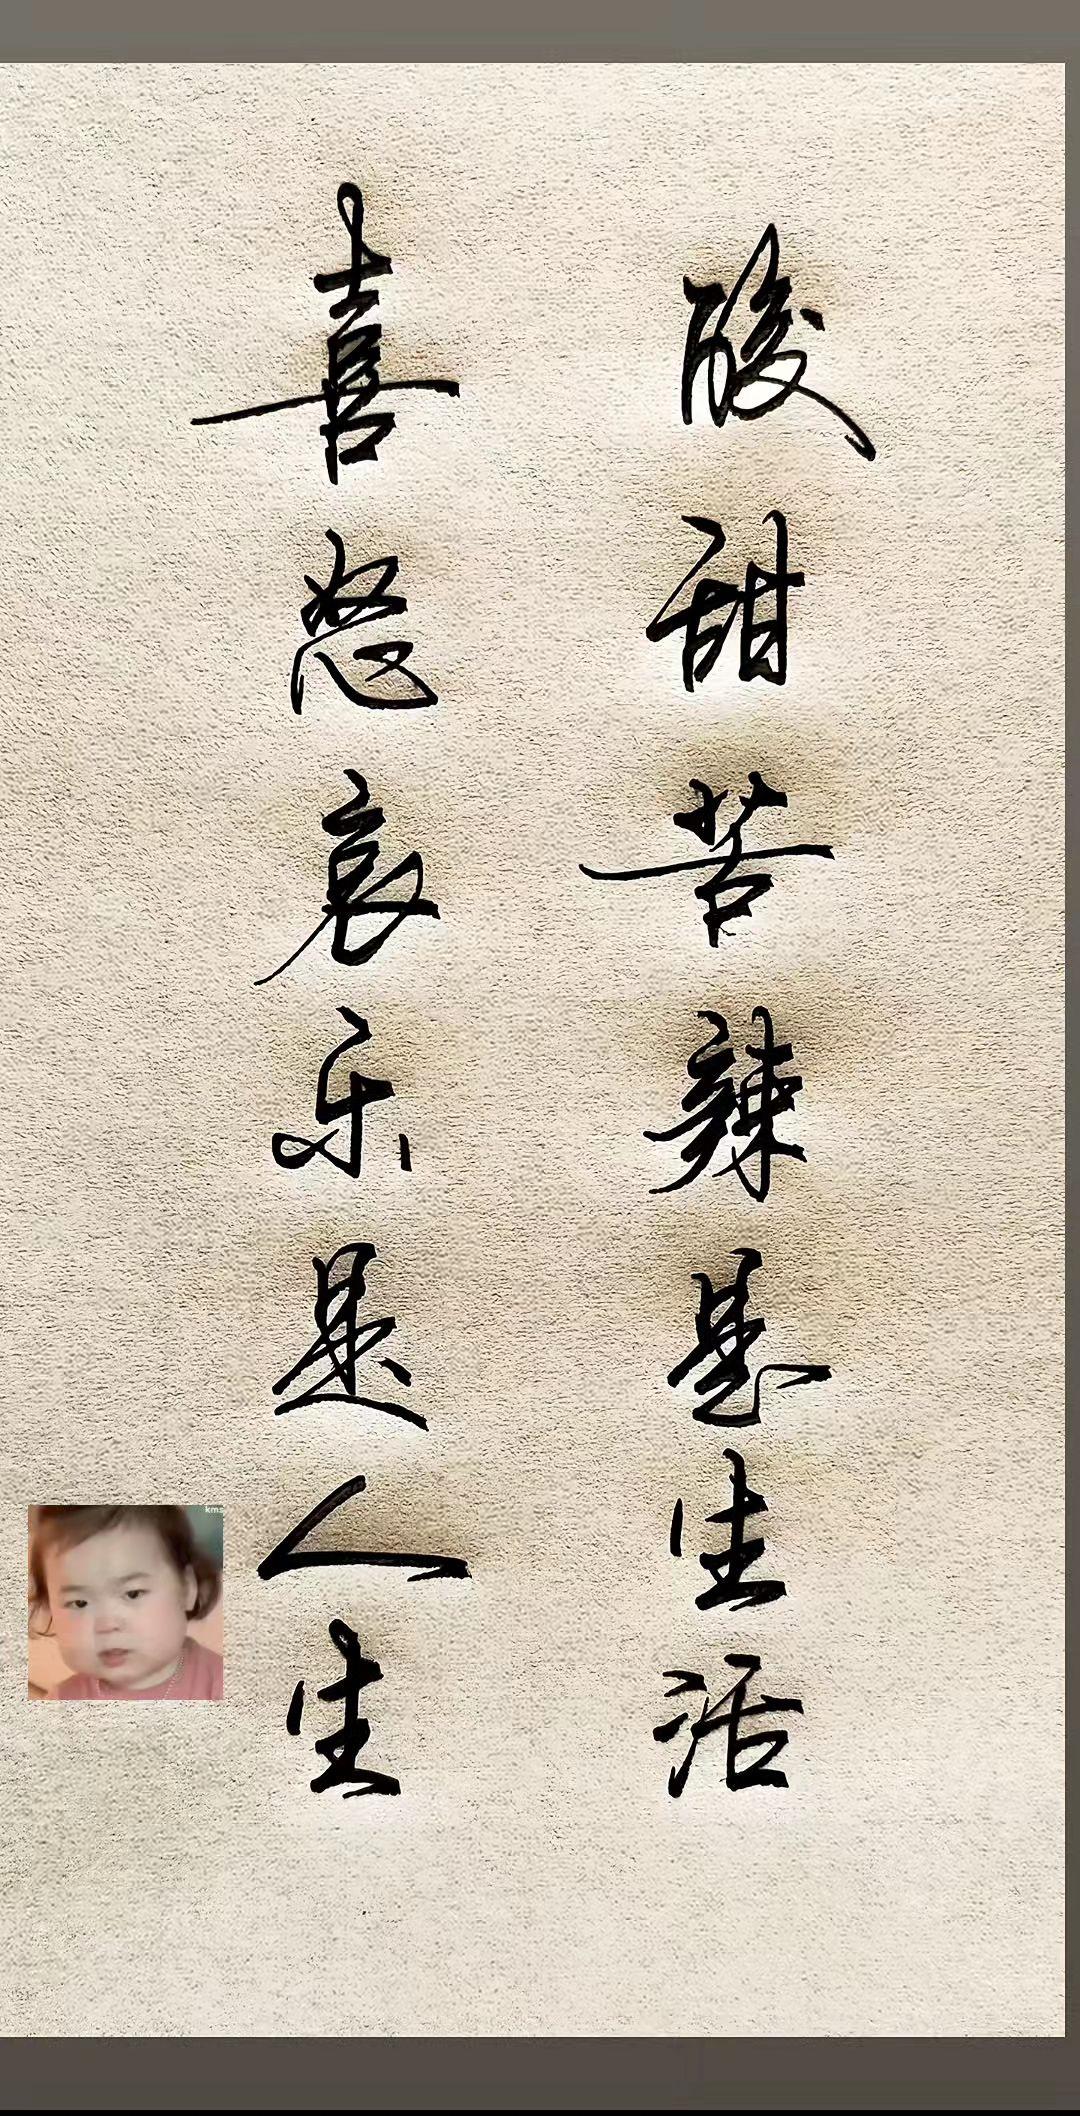 酸甜苦辣是生活
喜怒哀乐是人生
kms